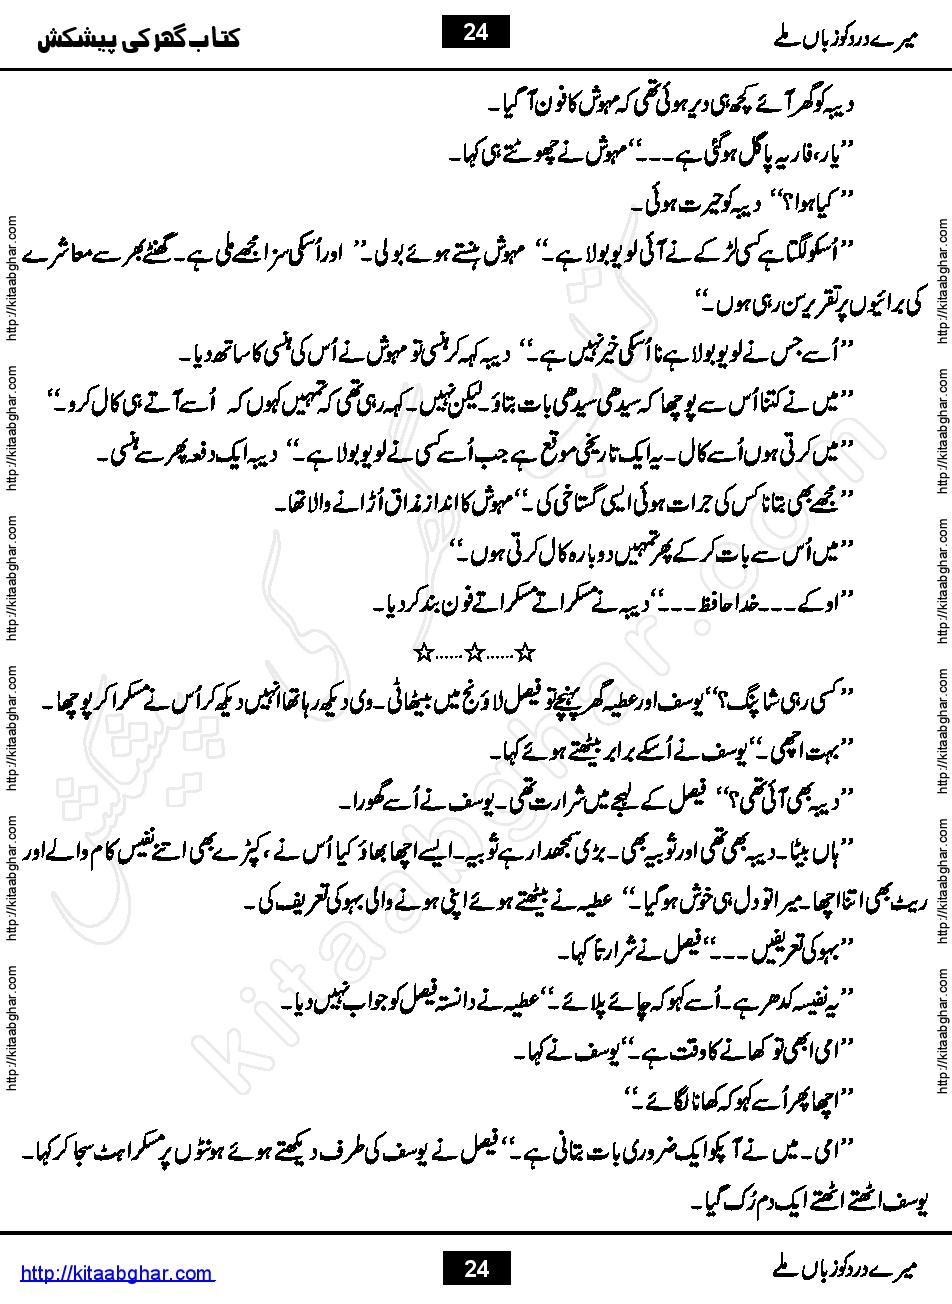 میرے درد کو زباں ملے
24
کتاب گھر کی پیشکش
دیبہ کو گھر آئے کچھ ہی دیر ہوئی تھی کہ مہوش کا فون آ گیا۔
”یار، فاریہ پاگل ہو گئی ہے۔۔۔“مہوش نے چھوٹتے ہی کہا۔
”کیا ہوا؟“ دیبہ کو حیرت ہوئی۔
”اُسکو لگتا ہے کسی لڑکے نے آئی لو یو بولا ہے۔“ مہوش ہنستے ہوئے بولی۔” اور اُسکی سزا مجھے ملی ہے۔ گھنٹے بھر سے معاشرے
کی برائیوں پر تقریر سن رہی ہوں۔“
”اُسے جس نے لو یو بولا ہے نا اُسکی خیر نہیں ہے۔“ دیبہ کہہ کر ہنسی تو مہوش نے اُس کی ہنسی کا ساتھ دیا۔
”میں نے کتنا اُس سے پوچھا کہ سیدھی سیدھی بات بتاؤ۔ لیکن نہیں۔ کہہ رہی تھی کہ تمہیں کہوں کہ اُسے آتے ہی کال کرو۔“
”میں کرتی ہوں اُسے کال۔ یہ ایک تاریخی موقع ہے جب اُسے کسی نے لو یو بولا ہے۔“ دیبہ ایک دفعہ پھر سے ہنسی۔
”مجھے بھی بتانا کس کی جرات ہوئی ایسی گستاخی کی۔“مہوش کا انداز مذاق اُڑانے والا تھا۔
”میں اُس سے بات کر کے پھر تمہیں دوبارہ کال کرتی ہوں۔“
”اوکے۔۔۔ خدا حافظ۔۔۔“دیبہ نے مسکراتے مسکراتے فون بند کر دیا۔
☆......☆......☆
”کسی رہی شاپنگ؟“یوسف اور عطیہ گھر پہنچے تو فیصل لاؤنج میں بیٹھا ٹی۔وی دیکھ رہا تھا انہیں دیکھ کر اُس نے مسکرا کر پوچھا۔
”بہت اچھی۔“یوسف نے اُسکے برابر بیٹھتے ہوئے کہا۔
”دیبہ بھی آئی تھی؟“ فیصل کے لہجے میں شرارت تھی۔ یوسف نے اُسے گھورا۔
”ہاں بیٹا۔ دیبہ بھی تھی اور ثوبیہ بھی۔ بڑی سمجھدار ہے ثوبیہ۔ ایسے اچھا بھاؤ کیا اُس نے، کپڑے بھی اتنے نفیس کام والے اور
ریٹ بھی اتنا اچھا۔ میرا تو دل ہی خوش ہو گیا۔“ عطیہ نے بیٹھتے ہوئے اپنی ہونے والی بہو کی تعریف کی۔
”بہو کی تعریفیں۔۔۔“فیصل نے شرارتاً کہا۔
”یہ نفیسہ کدھر ہے۔ اُسے کہو کہ چائے پلائے۔“عطیہ نے دانستہ فیصل کو جواب نہیں دیا۔
”امی ابھی تو کھانے کا وقت ہے۔“یوسف نے کہا۔
”اچھا پھر اُسے کہو کہ کھانا لگائے۔“
”امی۔ میں نے آپکو ایک ضروری بات بتانی ہے۔“فیصل نے یوسف کی طرف دیکھتے ہوئے ہونٹوں پر مسکراہٹ سجا کر کہا۔
یوسف اٹھتے اٹھتے ایک دم رُک گیا۔
میرے درد کو زباں ملے
24
http://kitaabghar.com
http://kitaabghar.com
http://kitaabghar.com
http://kitaabghar.com
http://kitaabghar.com
http://kitaabghar.com
http://kitaabghar.com
http://kitaabghar.com
http://kitaabghar.com
http://kitaabghar.com
http://kitaabghar.com
http://kitaabghar.com
http://kitaabghar.com
کتاب گھر کی پیشکش
kitaabghar.com